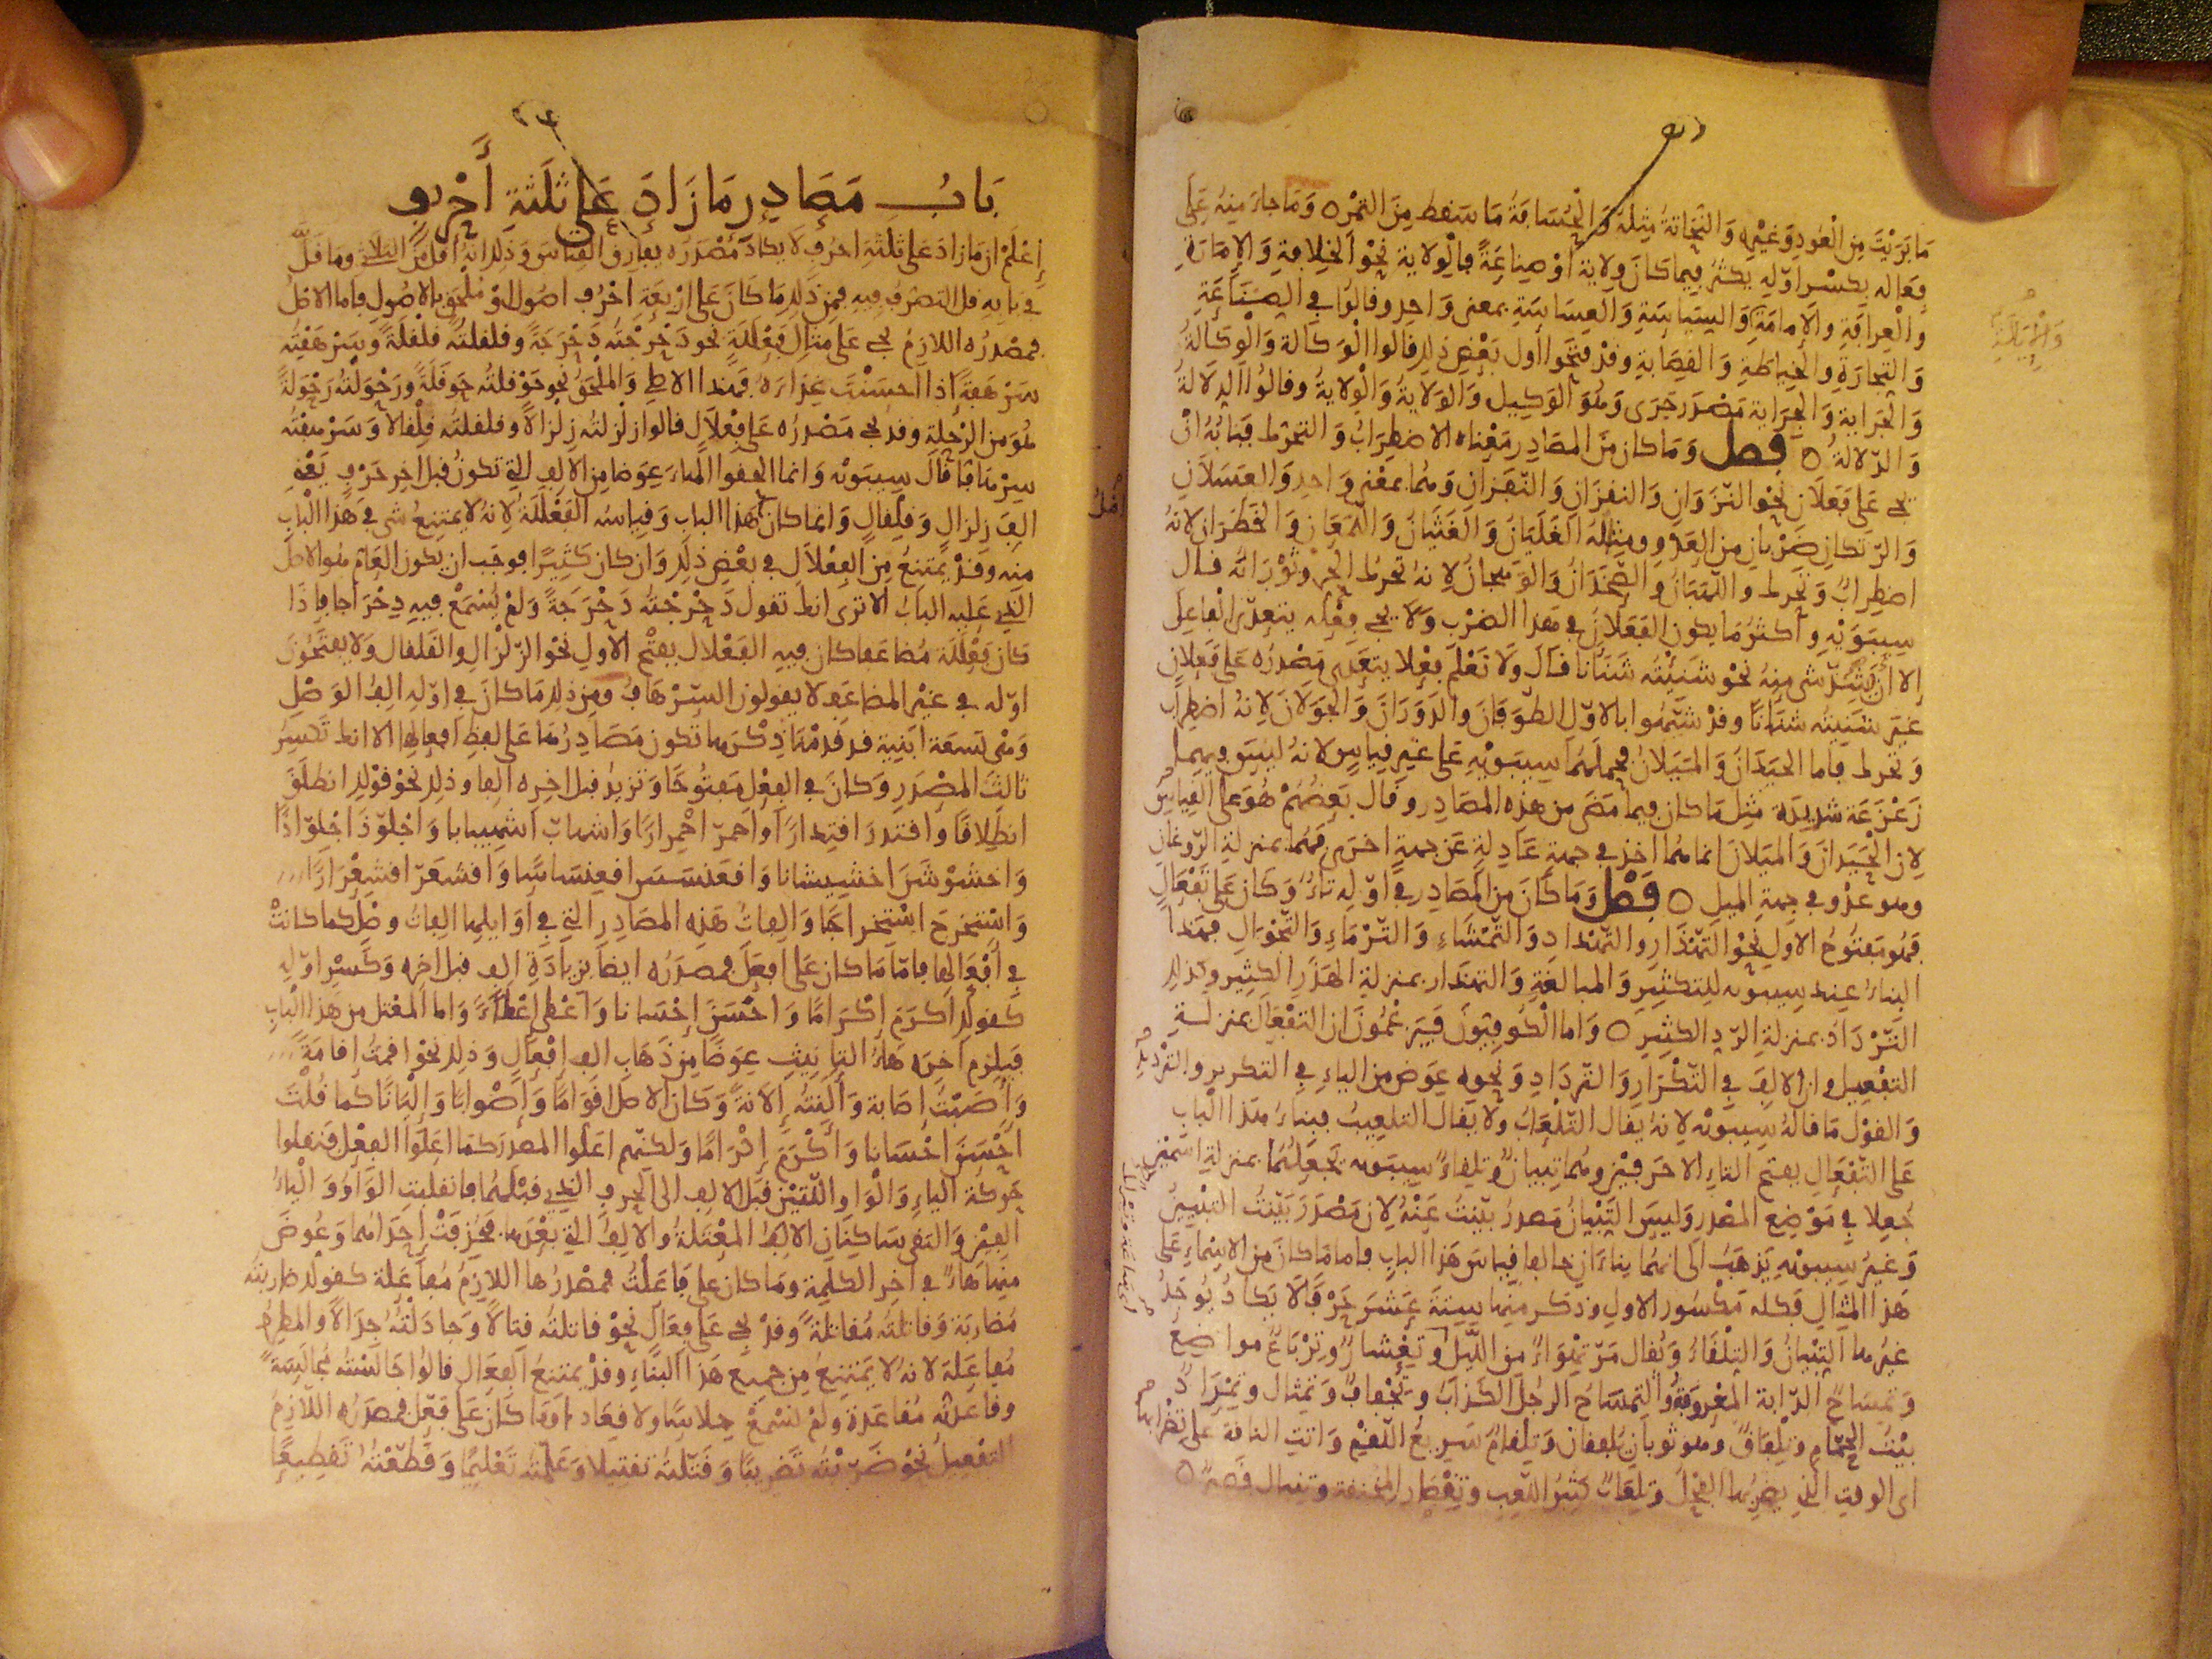 مَا بَرَيْتَ مِنَ الْعُودِ وَغَيْرِهِ وَالنُّحَاتَةُ مِثْلُهُ وَالْحُسَافَةُ مَا سَقَطَ مِنَ التَّمْرِ ٥ وَمَا جَاءَ مِنْهُ عَلَى
فِعَالَه بِكسْرِ اوّلِهِ يكثُرُ فيما كَانَ وِلايةً اَوْ صِنَاعَةً فالْوِلَايَة نحْوُ الخِلافةِ وَالْإِمَارَةِ
والْعِرَافَةِ والإِمامَةِ وَالسِّيَاسَةِ وَالعِيَاسَةِ بمعنى وَاحِدٍ وقالوُا في الصِّنَاعَةِ
وَالتِّجارَةِ والْخِيَاطَةِ وَالقِصَابةِ وقدْ فتَحُوا اول بَعْضِ ذلِكَ قالوا الْوَكَالة وَالْوِكَالَةُ
وَالْجَرَاية وَالْجِرَاية مَصْدر جَرَى وَهُوَ الوَكِيل وَالوَلَايةُ وَالْوِلَايةُ وقالوُا الدِّلَالَةُ
وَالدَّلالةُ ٥ فصل وَمَا كان مِنَ المصَادِرِ مَعْنَاه الاضطِرَابُ وَالتحرُّك فَبَابُهُ انْ
يجيَ عَلَى فَعَلَان نحْوُ النَّزَوَانِ وَالنقزَانِ وَالنَّفَزَانِ وَهُما بمعْنى وَاحِدٍ وَالْعَسَلَانِ
وَالرّتكَانِ ضَرْبانِ مِنَ العَدْوِ ومِثلهُ الغَلَيَانُ وَالْغَثَيَانُ وَاللّمعَانِ وَالخَطَرَان لانهُ
اضطِرابٌ وَتحَرك واللّهَبَانُ والصَّخَدَانُ وَالوَهَجانُ لِانهُ تحرُك الحَرّ وثؤْرَانُه قال
سِيبَوَيْهِ وأكثرُ مَا يكونُ الفَعَلَانُ في هذا الضرْب وَلَا يجي فِعْلُه يتعدّى الفَاعِلَ
إلا أن يشِذَّ شي منهُ نحْوُ شَنِئْتُه شَنَئَانا قَالَ وَلَا نَعْلَمُ فِعْلا يتعَدّى مَصْدَرُه عَلى فَعَلَانٍ
غيرَ شنِئتُه شنَآنًا وقدْ شبّهُوا بالاوّل الطوَفَانَ والدّوَرَانَ وَالْجَوَلَانَ لانهُ اضطِرَابٌ
وَتحَرك فاما الحَيَدَانُ وَالمَيَلانُ فحمَلهُمَا سِيبَوَيْهِ عَلى غيرِ قِيَاسٍ لانهُ ليسَ فيهِما
زَعْزَعَة شدِيدَة مِثل مَا كان فيما مَضَى من هذه المصَادِر وقال بَعْضُهُمْ هُوَ عَلى القِيَاسِ
لِان الْحَيَدَانَ وَالميَلَانَ انما هُما اخذ في جهةٍ عَادِلَةٍ عَنْ جهةٍ اخرَى فَهُما بمنزلة الرّوغان
وهو عَدْو في جهةِ الميل ٥ فصل وَمَا كَانَ مِنَ المصَادر في اوّلِهِ تاءٌ وَكَان عَلى تَفْعَالٍ
فَهُو مَفتُوحُ الأول نحْوُ التَّهْذَارِ والتَّهْدَارِ وَالتَّمْشَاءِ وَالتَّرْمَاءِ وَالتَّجْوَالِ فهَذَا
البناءُ عِند سيبويه للِتكثِيرِ وَالمبَالغَةِ وَالتهْذَار بمنزلة الهَذَرِ الكثيرِ وكذلِك
التَّرْدَادُ بمنزلةِ الرّدِ الكثِيرِ ٥ وَاما الْكُوفِيُّونَ فَيَزْعُمُونَ ان التفْعَال بمنزلَةِ
التفْعِيل وَان الالِفَ في التَّكْرَارِ وَالتردَادِ وَنحوِه عِوَض من الياءِ في التكرير والتَرْدِيدِ
وَالقوْل مَا قالَهُ سِيبَوَيْهِ لانهُ يقال التَّلْعَابُ ولا يقال التلعِيبُ فبناءُ هذا الْباب
عَلى التَّفْعَالِ بفتح التاءِ الا حَرفيْنِ وهُما تِبيانٌ وتِلقاءٌ سِيبَويه يجعَلهُما بمنزلةِ اسْمَيْنِ
جُعِلا في مَوْضِع المصْدر وَليسَ التِّبْيانُ مَصدر بيّنتُ عَنْهُ لِان مَصْدرَ بَيَّنتُ التَّبْيينُ
وَغيرُ سِيبويْهِ يَذهَبُ الى انهُما بِنَاءَانِ خالفا قِياسَ هَذا البابِ فاما مَا كانَ مِن الاسْمَاءِ عَلى
هَذا المثَالِ فكله مَكسُور الاولِ وذكر منها ستةَ عَشَرَ حَرْفًا لَا يَكادُ يُوجَدُ
غيرُها التِّبْيانُ وَالتِّلْقَاءُ وَيُقال مَرّ تِهْوَاءٌ من الليْلِ وتِعْشَارٌ وتِرْبَاعٌ موَاضِعُ
وَتِمْسَاحٌ الدّابة الْمعْروفةُ والتِّمْسَاحُ الرجُلُ الكَذابُ وَتِجْفَافٌ وَتِمْثَال وَتِمْرَادٌ
بيْتُ الحَمَامِ وَتِلْفَاقٌ وهو ثوبانِ يُلْفقانِ وَتِلْقَامٌ سَرِيعُ اللّقْمِ وَاتتِ الناقة عَلى تِضْرَابِهَا
اى الوقت الذِي يضرِبُها الفحْلُ وَتِلْعَابٌ كثيرُ اللّعِبِ وَتِقْصَار المخنقة وَتِنْبَال قَصِيرٌ ٥
بَابُ مَصَادِرِ مَا زَادَ عَلَى ثَلَثَةِ أَحْرُفٍ
إِعْلَمْ ان مَا زادَ عَلى ثَلَثَةِ احرُفٍ لَا يكادُ مَصْدَرُه يفارق القِيَاسَ وَذلِكَ انهُ اقل مِنَ الثلَاثِيّ ومَا قَلَّ
في بَابِهِ قل التصرّفُ فيهِ فمِن ذَلِكَ مَا كَانَ عَلى ارْبَعَةِ اَحْرُفٍ اصُولٍ اوْ مُلْحَقٍ بالاصُولِ فاما الاصْلُ
فمَصْدَرُه اللازِمُ يجي عَلى مِثَالِ فَعْلَلَةٍ نحو دَحْرَجْتُه دَحْرَجَةً وفلفلتُه فلْفلَةً وسَرْهَفْتُه
سَرْهَفةً إذا احسَنْتَ غِذَاءَهُ فَهَذا الاصلي وَالمُلْحَقُ نحوُ حَوْقلتُه حَوقَلَةً ورَحْوَلْتُه رَحْوَلةً
هُوَ مِن الرُّحْلَةِ وقد يجي مَصْدَرُه عَلى فِعْلَالٍ قالوا زلزلتُه زِلزَالاً وفلفلتُه فِلْفَالاً وَسَرْهفتُه
سِرْهَافًا قَالَ سِيبَوَيْه وَانما الحقوا الهاءَ عِوَضا مِن الالِفِ التي تكونُ قبل اخِرِ حَرْفٍ يَعْنِي
الِفَ زِلزالٍ وَفِلفالٍ وَانما كانَ هَذا الباب وَقِياسُه الفَعْلَلَةَ لانهُ لا يمتنِعُ شي في هَذا الْبابِ
منه وقدْ يمتنعُ مِن الفِعْلَالِ في بعْضِ ذلِك وَان كان كَثِيرًا فوجَب ان يكون العَام هو الاصْل
الذِي عَليه البَابُ الا ترى انك تقول دَحْرَجْتُه دَحْرَجَةً وَلمْ يُسْمَعْ فيه دِحْرَاجا فاذَا
كانَ فَعْلَلَة مُضاعَفا كان فيهِ الفَعْلَال بفتْحِ الاول نحْوُ الزَّلْزَالِ والقَلقالِ وَلا يفتحُونَ
اوّلَه في غيْر المضاعَفِ لا يقولونَ السَّرْهَافُ ومِن ذلِك مَا كانَ في اوّلِه الِفُ الوَصْلِ
وَهْي تسعَة أبْنِيَةٍ قد قدمْنَا ذكْرَها تكون مَصَادِرُهَا عَلى لفظ افعالِها الا انك تَكسِرُ
ثالثَ المصْدرِ وَكانَ في الفِعْل مَفتُوحًا وَتزيدُ قبل اخرِه الفا وذلِك نحْوُ قوْلِك انطَلَقَ
انطِلاقًا وَاقتدَرَ اقتِدارًا واحمَرّ احْمِرارًا وَاشهابّ اشهِيبَابا وَاجْلَوّذَ اجْلِوّاذًا
وَاخشوْشَنَ اخشِيشانا وَاقعَنسَسَ اقعِنسَاسًا وَاقشعَرّ اقشِعْرَارًا
وَاسْتخرَجَ اسْتِخرَاجًا وَالِفاتُ هَذِهِ المصَادِرِ التي في أوَايلِها الِفاتُ وَصْل كما كانتْ
في أفْعَالِها فامّا مَا كان عَلى افعَلَ فمصدَرُه ايضا بزيادَةِ الِفٍ قبل اخِرِه وَكَسْرِ اوّلِهِ
كقولِك أكْرَمَ إكْرَامًا وَأحْسَنَ إحْسَانا وَأعْطَى إعْطاءً وَاما الْمعْتل مِن هَذا الْبابِ
فيلزم آخِرَه هَاءُ التأنيثِ عِوَضًا مِن ذَهَاب الفِ إفْعَالٍ وَذلك نحْوُ اقمتُ إقامَةً
وَأصَبْتُ إصَابة وَألَنتُه إلَانةً وَكان الاصل اقوَامًا وَإصْوابًا وَإلْيَانًا كما قُلْتَ
احْسَنَ احْسَانا وَأكْرَمَ إكْرَامًا وَلكنّهم اعَلّوا المصدرَ كمَا اعَلّوا الفِعْلَ فنقلوا
حَرَكَة الياءِ وَالْوَاوِ اللّتيْنِ قبْل الالف الى الحرفِ الذِي قبْلَهُما فانقلبتِ الوَاوُ وَالْياءُ
الفيْنِ وَالتقى سَاكِنَانِ الالِفُ المعْتلةُ والالِفُ التي بعْدَها فحُذِفتْ إحْدَاهُما وَعُوضَ
منها هاءً في اخِرِ الكلمِة ومَا كان على فَاعَلْتُ فمَصْدرُها اللازِمُ مُفاعَلة كقولك ضاربتُه
مُضَاربَة وَقاتلتُه مُقاتلَةً وقدْ يجي عَلى فِعَالٍ نحْوُ قاتلتُه قتالاً وَجادَلْتُه جِدَالاً والمطرِدُ
مُفاعَلة لانهُ لا يَمْتنِعُ مِن جميع هَذا البِنَاءِ وقدْ يمتنعُ الفِعَال قالوُا جَالَسْتُه مُجالَسَةً
وقاعَدتُه مُقاعَدة ولَمْ نسْمَعْ جِلاسًا ولا قِعَادا ومَا كَانَ عَلى فَعّل فمصدَرُه اللّازِمُ
التفْعِيل نحْوُ ضَرّبْتُه تَضْرِيبًا وَقَتّلْتُه تقتِيلا وَعَلمْتُه تَعْلِيمًا وَقَطّعْتُهُ تقْطِيعًا